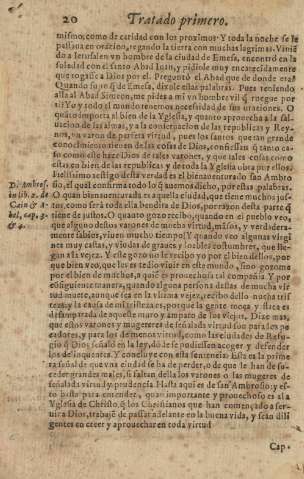 20 Tratado primero.
mismo, como de caridad con los proximos. Y toda la noche se le
passaua en oracion, regando la tierra con muchas lagrimas. Vinie
do a Ierusalen vn hombre de la ciudad de Emess, encontrò en la
soledad con el santo Abad Iuan, y pidiole muy encarecidamente
que rogasse a Dios por el. Preguntò el Abad que de donde era?
Quando supo q̃ de Emess, dixole estas palabras. Pues teniendo
alla al Abad Simeon, me pides a mi vn hombre vil q̃ ruegue por
ti? Yo y todo el mundo tenemos necessidad de sus oraciones. O
quãto importa al bien de la Yglesia, y quanto aprouecha a la sal-
uacion de las almas, y a la conseruacion de las republicas y Rey-
nos, vn varon de perfeta virtud, pues los santos que tan grande
conocimiento tienen de las cosas de Dios, confiessan q̃ tanto ca-
so como este haze Dios de tales varones, y que tales cosas como
estas en bien de las republicas y de toda la Yglesia obra por ellos.
Fidelissimo testigo desta verdad es el bienauenturado san Ambro
D. Ambros. sio, el qual confirma todo lo q̃ auemos dicho, por estas palabras.
in lib. 2. de O quan bienauenturada es aquella ciudad, que tiene muchos jus-
Cain & A tos, como serà toda ella bendita de Dios, por razon desta parte q̃
bel, cap. 3. tiene de justos. O quanto gozo recibo, quando en el pueblo veo,
& 4. que algunos destos varones de mucha virtud, mãsos, y verdadera-
mente sabios, viuen mucho tiempo! Y quando veo algunas virgi
nes muy castas, y viudas de graues y loables costumbres, que lle-
gan a la vejez. Y este gozo no le recibo yo por el bien dellos, por
que bien veo, que les es tedio viuir en este mundo, sino gozome
por el bien de muchos, a quiẽ es prouechosa su compañia. Y por
cõsiguiente manera, quando alguna persona destas de mucha vir
tud muere, aunque sea en la vltima vejez, recibo dello mucha tris
teza, y la causa de mi tristeza es, porque la gente moça y flaca es
desamparada de aquelle muro y amparo de los viejos. Dize mas,
que estos varones y mugeres de señalada virtud son para los pe
cadores, y para los de menos virtud, como las ciudades de Refu-
gio q̃ Dios señalò en la ley, dõde se pudiessen acoger y defender
los delinquentes. Y concluye con esta sentencia: Esta es la prime
ra señal de que vna ciudad se ha de perder, o de que le han de su-
ceder grandes males, si faltan della los varones o las mugeres de
señalada virtud y prudencia. Hasta aqui es de san Ambrosio: y es-
to basta para entender, quan importante y prouechoso es a la
Yglesia de Christo, q̃ los Christianos que han començado a ser-
uir a Dios, trabajẽ de passar adelante en la buena vida, y seãn dili
gentes en crecer y aprouechar en toda virtud.
Cap.